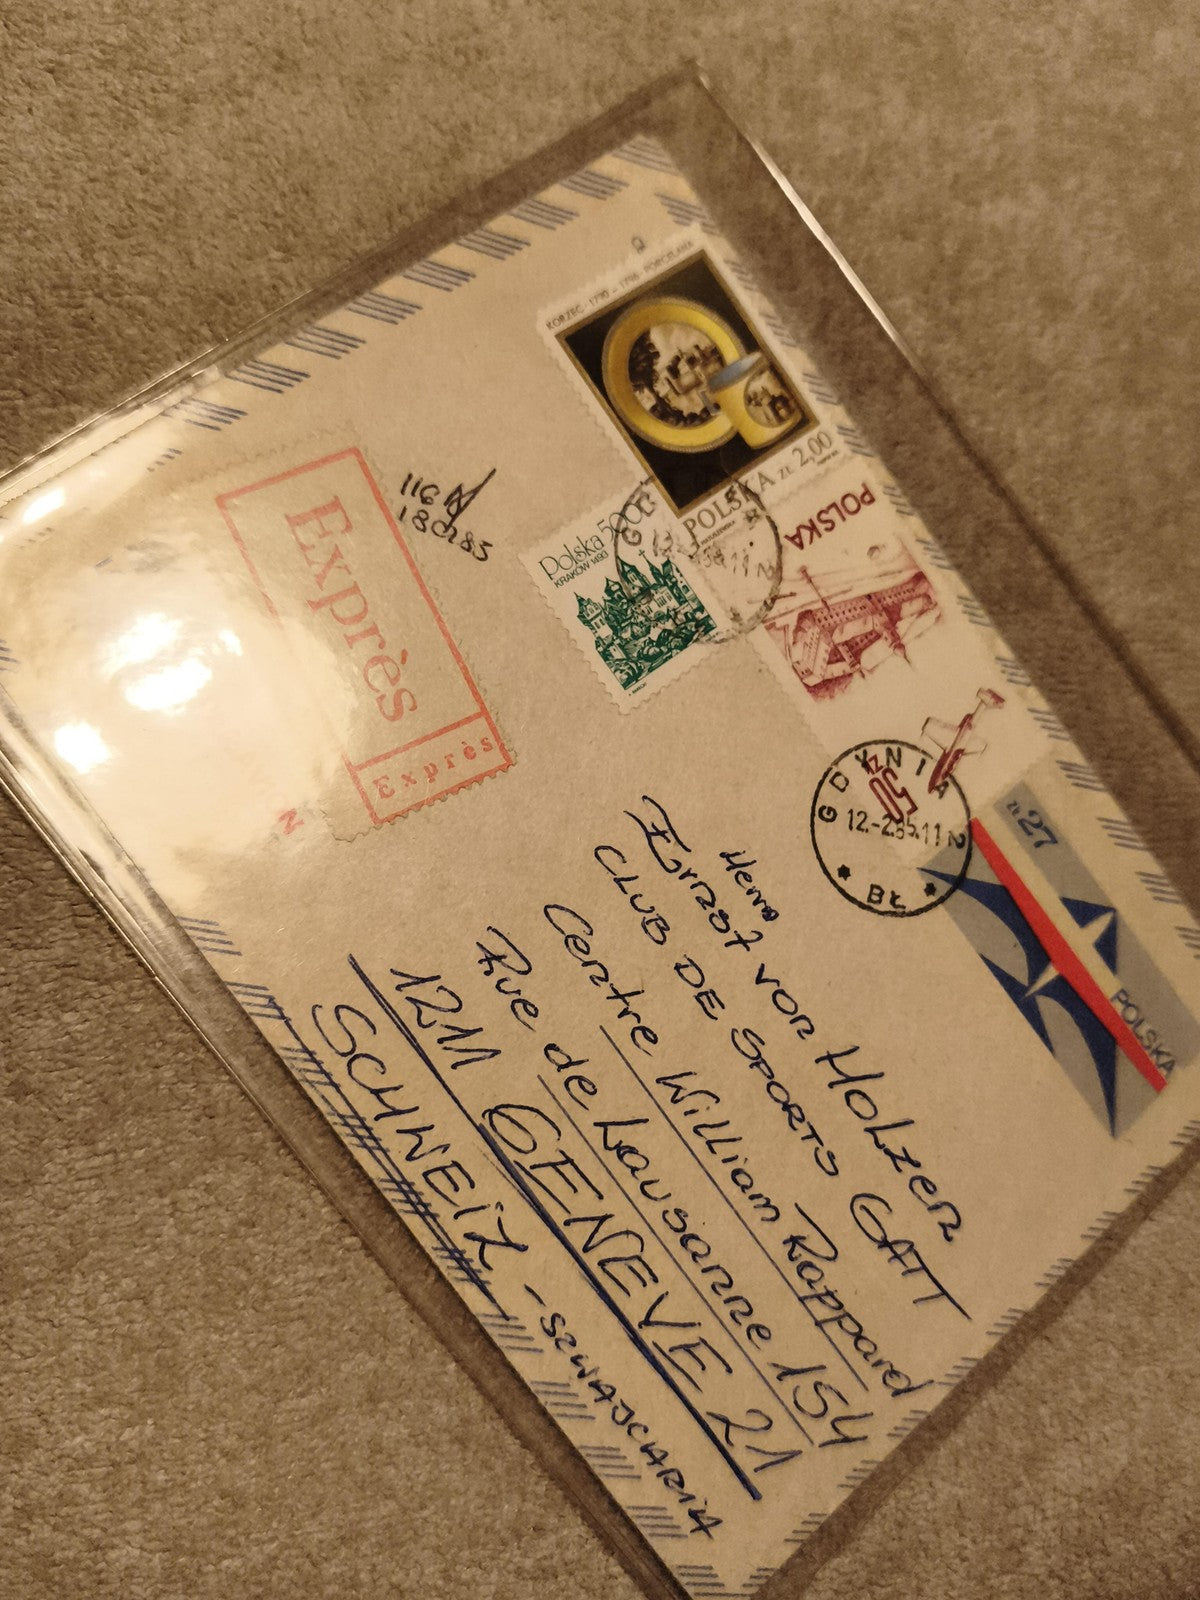 KORZEC · 1790 - 1796 · PORCELANA
POLSKA ZŁ 2,00
Polska 500
KRAKÓW 1493
POLSKA
50 ZŁ
GDYNIA 2
12.-2.85.11
* BŁ *
ZŁ 27
POLSKA
Exprès
Exprès
Herrn
Ernst von Holzen
CLUB DE SPORTS GATT
Centre William Rappard
Rue de Lausanne 154
1211 GENEVE 21
SCHWEIZ - SZWAJCARIA